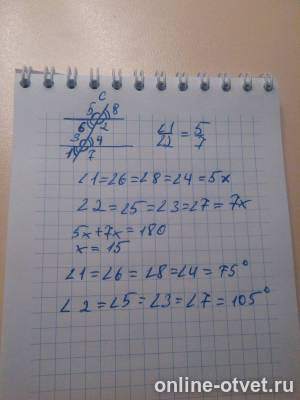 C
5 8
6 2
3 4
1 7
∠1/∠2 = 5/7
∠1=∠6=∠8=∠4=5x
∠2=∠5=∠3=∠7=7x
5x+7x=180
x=15
∠1=∠6=∠8=∠4=75°
∠2=∠5=∠3=∠7=105°
online-otvet.ru